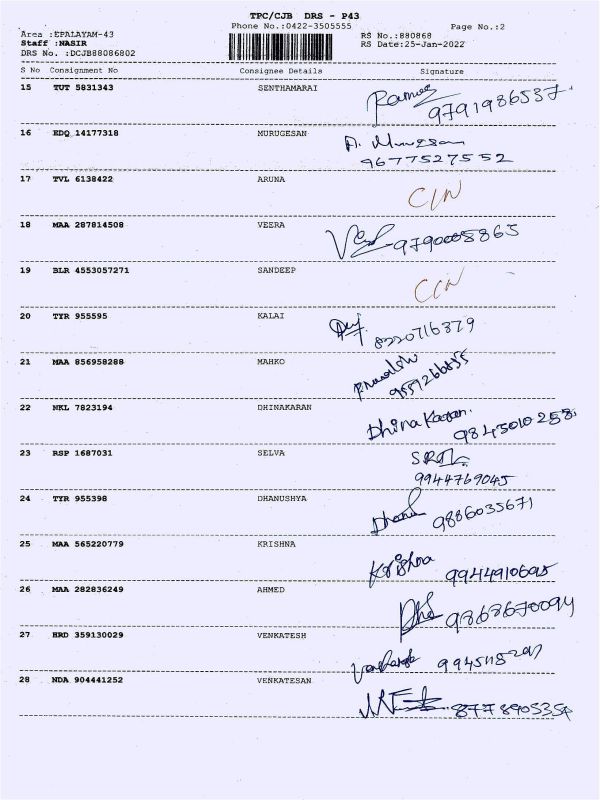 TPC/CJB DRS - P43
Phone No.:0422-3505555
Page No.:2
Area :EPALAYAM-43
RS No.:880868
Staff :NASIR
RS Date:25-Jan-2022
DRS No. :DCJB88086802
S No Consignment No Consignee Details Signature
15 TUT 5831343 SENTHAMARAI
9791986537
16 EDQ 14177318 MURUGESAN
A. Murugesan
9677527552
17 TVL 6138422 ARUNA
C/N
18 MAA 287814508 VEERA
9790005865
19 BLR 4553057271 SANDEEP
C/N
20 TYR 955595 KALAI
8220716379
21 MAA 856958288 MAHKO
22 NKL 7823194 DHINAKARAN
Dhina Karan.
9845010258
23 RSP 1687031 SELVA
9944769045
24 TYR 955398 DHANUSHYA
9886035671
25 MAA 565220779 KRISHNA
Krishna
26 MAA 282836249 AHMED
27 HRD 359130029 VENKATESH
28 NDA 904441252 VENKATESAN